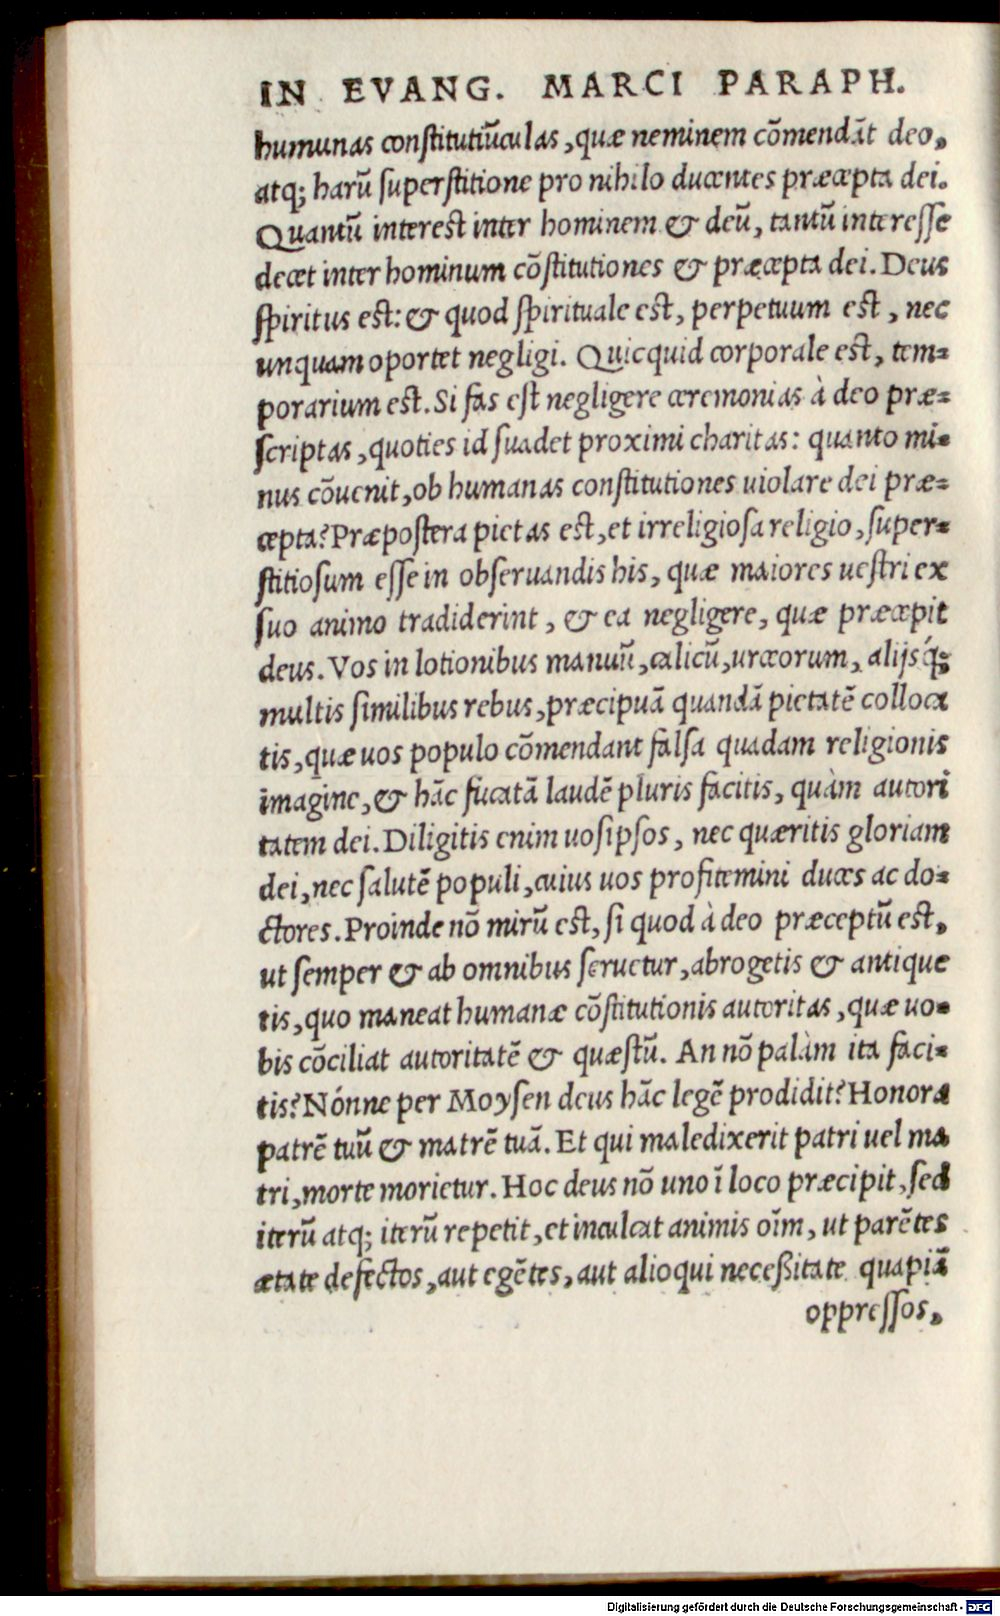 IN EVANG. MARCI PARAPH.
humunas constitutiūculas, quæ neminem cōmendāt deo,
atq; harū superstitione pro nihilo ducentes præcepta dei.
Quantū interest inter hominem & deū, tantū interesse
decet inter hominum cōstitutiones & præcepta dei. Deus
spiritus est: & quod spirituale est, perpetuum est, nec
unquam oportet negligi. Quicquid corporale est, tem-
porarium est. Si fas est negligere ceremonias à deo præ-
scriptas, quoties id suadet proximi charitas: quanto mi-
nus cōuenit, ob humanas constitutiones uiolare dei præ-
cepta? Præpostera pietas est, et irreligiosa religio, super-
stitiosum esse in obseruandis his, quæ maiores uestri ex
suo animo tradiderint, & ea negligere, quæ præcepit
deus. Vos in lotionibus manuū, calicū, urceorum, alijsq́;
multis similibus rebus, præcipuā quandā pietatē colloca
tis, quæ uos populo cōmendant falsa quadam religionis
imagine, & hāc fucatā laudē pluris facitis, quàm autori
tatem dei. Diligitis enim uosipsos, nec quæritis gloriam
dei, nec salutē populi, cuius uos profitemini duces ac do-
ctores. Proinde nō mirū est, si quod à deo præceptū est,
ut semper & ab omnibus seruetur, abrogetis & antique
tis, quo maneat humanæ cōstitutionis autoritas, quæ uo-
bis cōciliat autoritatē & quæstū. An nō palàm ita faci-
tis? Nónne per Moysen deus hāc legē prodidit? Honora
patrē tuū & matrē tuā. Et qui maledixerit patri uel ma
tri, morte morietur. Hoc deus nō uno ī loco præcipit, sed
iterū atq; iterū repetit, et inculcat animis oīm, ut parētes
ætate defectos, aut egētes, aut alioqui neceßitate quapiā
oppressos,
Digitalisierung gefördert durch die Deutsche Forschungsgemeinschaft - DFG